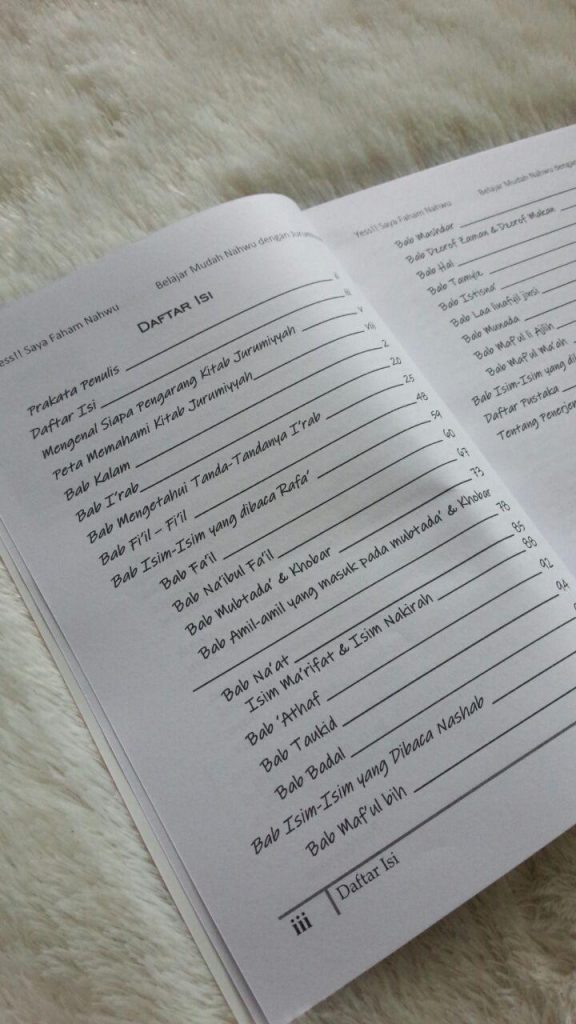 Yess!! Saya Faham Nahwu
Belajar Mudah Nahwu dengan
DAFTAR ISI
Prakata Penulis
Daftar Isi iii
Mengenal Siapa Pengarang Kitab Jurumiyyah v
Peta Memahami Kitab Jurumiyyah vii
Bab Kalam 2
Bab I'rab 20
Bab Mengetahui Tanda-Tandanya I'rab 25
Bab Fi'il – Fi'il 48
Bab Isim-Isim yang dibaca Rafa' 59
Bab Fa'il 60
Bab Na'ibul Fa'il 67
Bab Mubtada' & Khobar 73
Bab Amil-amil yang masuk pada mubtada' & Khobar
78
Bab Na'at 85
Isim Ma'rifat & Isim Nakirah 88
Bab 'Athaf 92
Bab Taukid 94
Bab Badal
Bab Isim-Isim yang Dibaca Nashab
Bab Maf'ul bih
iii Daftar Isi
Yess!! Saya Faham Nahwu
Belajar Mudah Nahwu dengan
Bab Mashdar
Bab Dzorof Zaman & Dzorof Makan
Bab Hal
Bab Tamyiz
Bab Istisna'
Bab Laa linafyil jinsi
Bab Munada
Bab Maf'ul li Ajlih
Bab Maf'ul Ma'ah
Bab Isim-Isim yang
Daftar Pustaka
Tentang